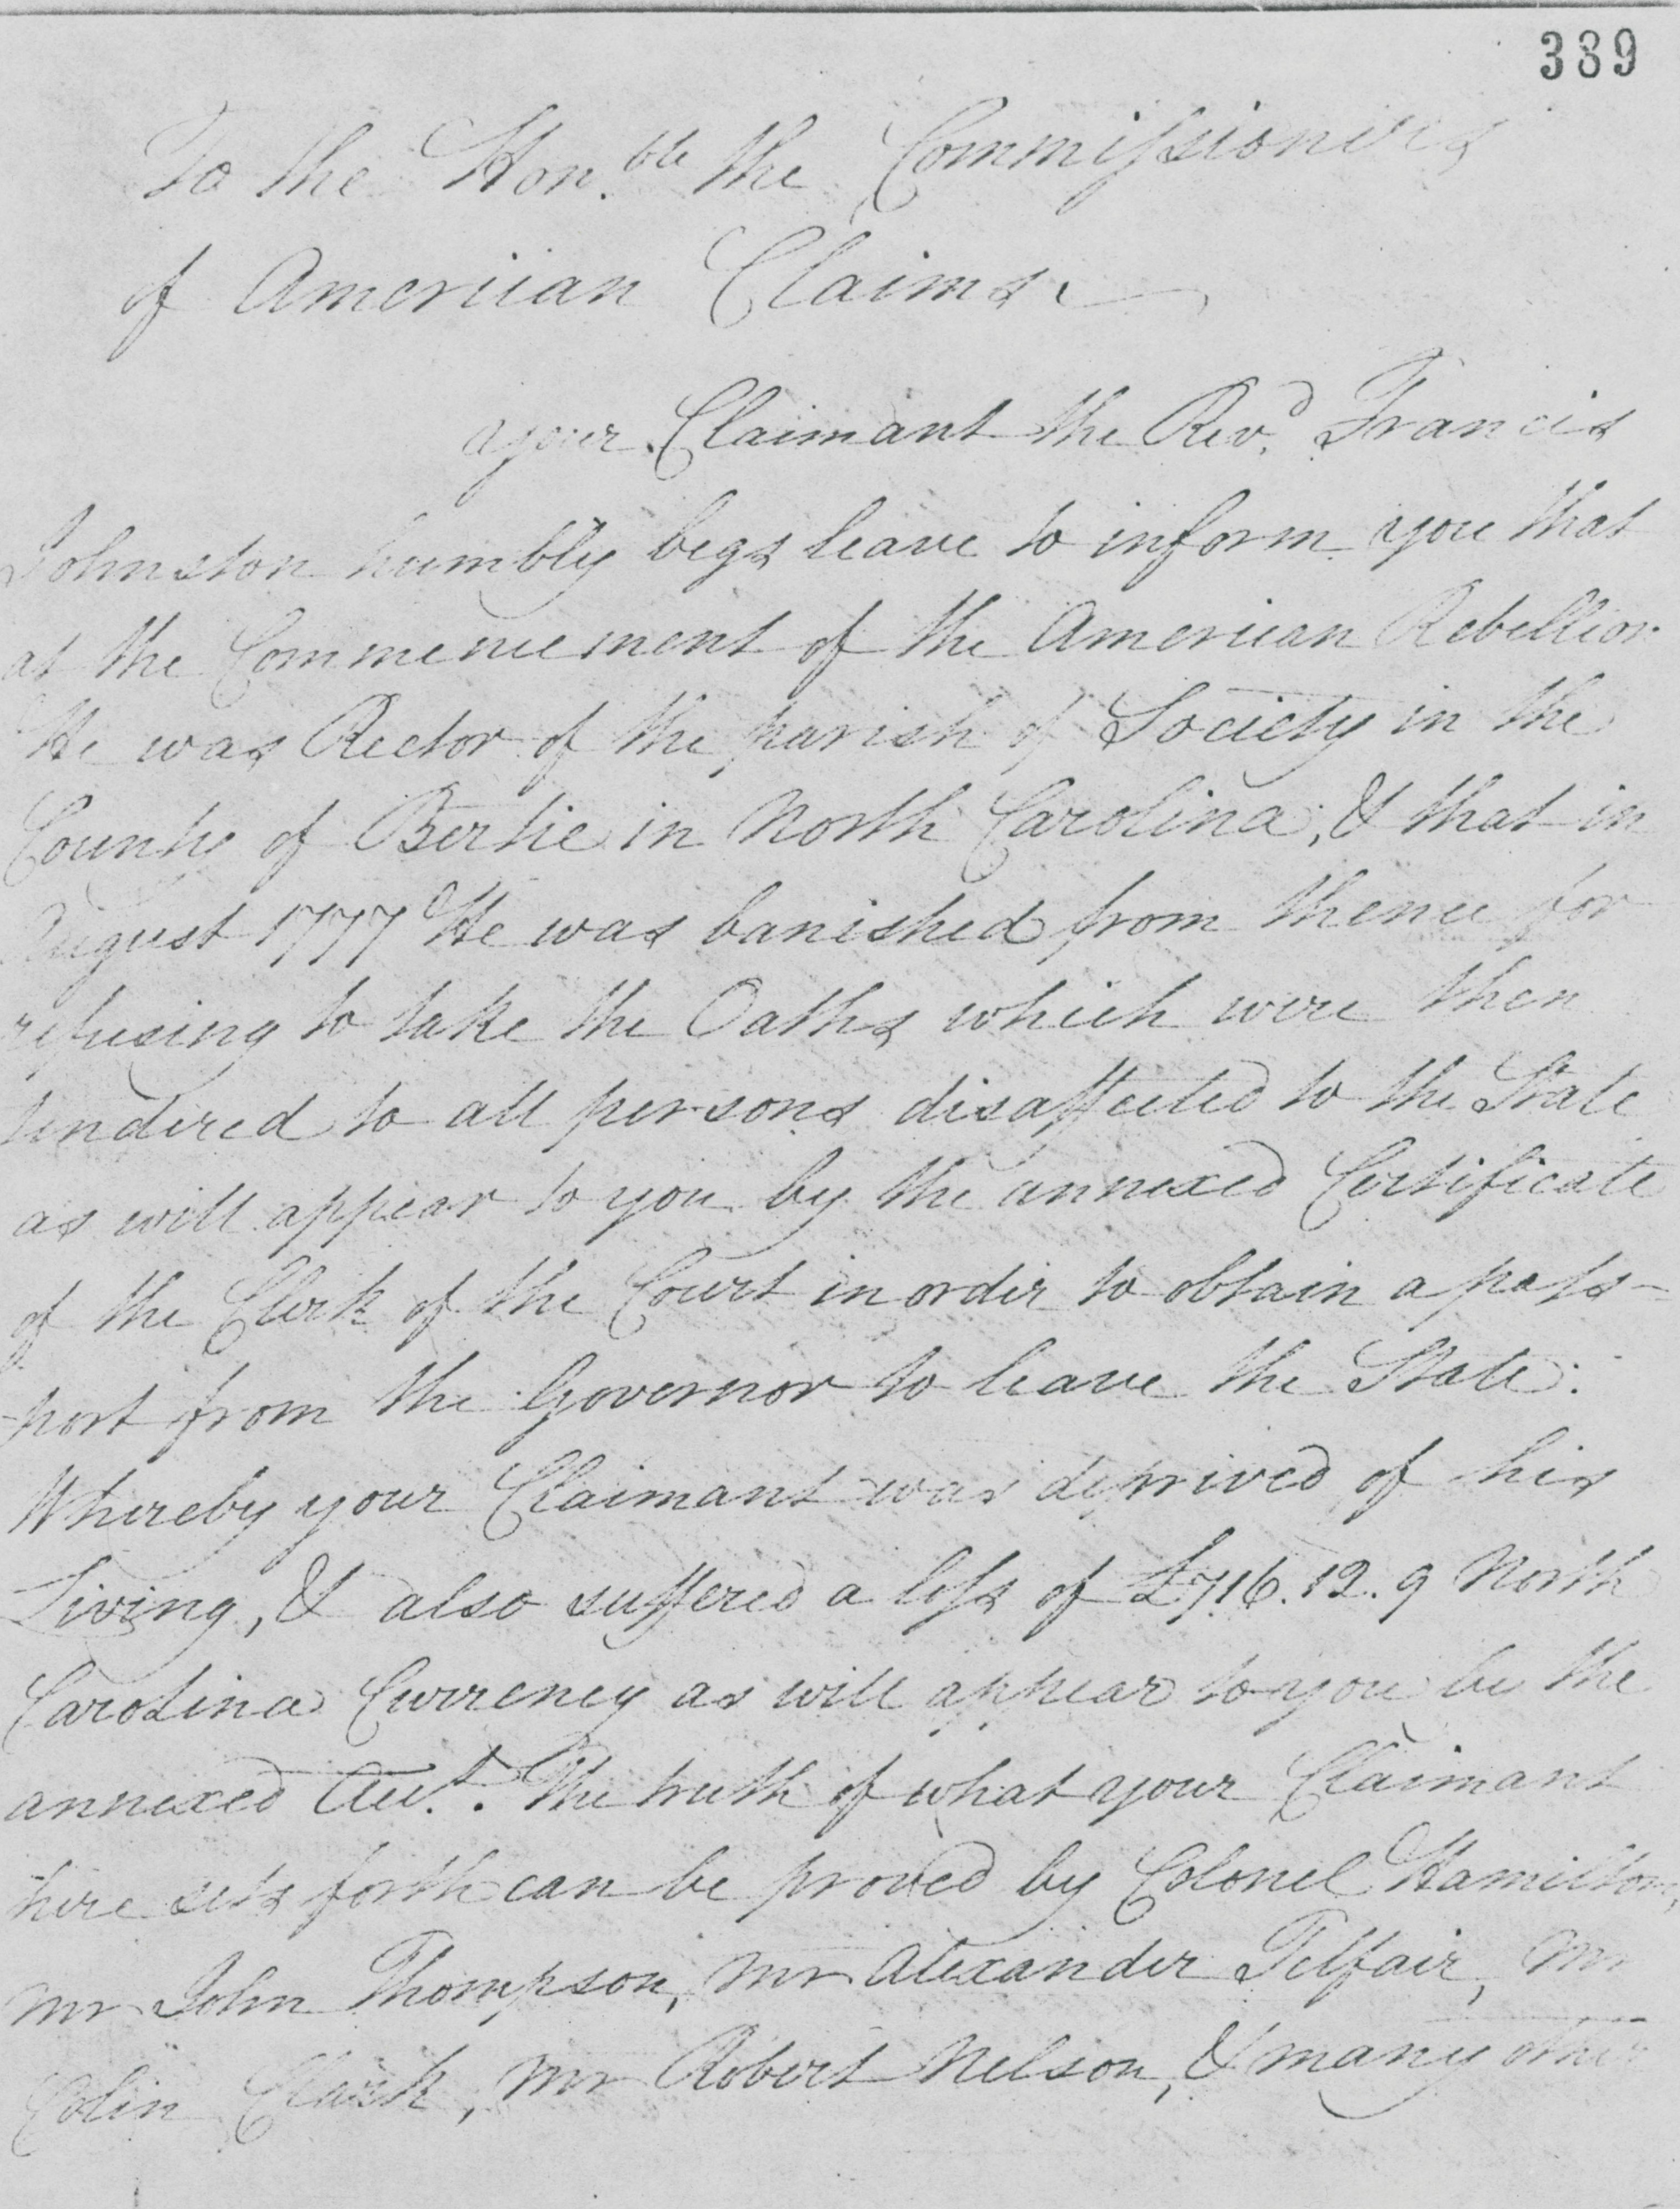 389
To the Hon.ble the Commissioners
of American Claims.
your Claimant the Rev.d Francis
Johnston humbly begs leave to inform you that
at the Commencement of the American Rebellion
He was Rector of the parish of Society in the
County of Bertie in North Carolina, & that in
August 1777 He was banished from thence for
refusing to take the Oaths which were then
tendered to all persons disaffected to the State
as will appear to you by the annexed Certificate
of the Clerk of the Court in order to obtain a pass-
-port from the Governor to leave the State:
Whereby your Claimant was deprived of his
Living, & also suffered a loss of £716.12.9 North
Carolina Currency as will appear to you by the
annexed Acc.t. The truth of what your Claimant
here sets forth can be proved by Colonel Hamilton,
Mr John Thompson, Mr Alexander Telfair, Mr
Colin Clark, Mr Robert Nelson, & many other